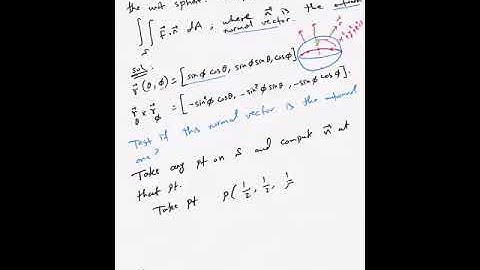 the unit sphere.
∫∫ F⃗·n⃗ dA ; where n⃗ is the outward
S normal vector.
Sol:
r⃗(θ,φ) = [sinφ cosθ, sinφ sinθ, cosφ]
r⃗_θ × r⃗_φ = [-sin²φ cosθ, -sin²φ sinθ, -sinφ cosφ].
Test if this normal vector is the outward
one?
Take any pt on S and compute n⃗ at
that pt.
Take pt P(1/2, 1/2, 1/√